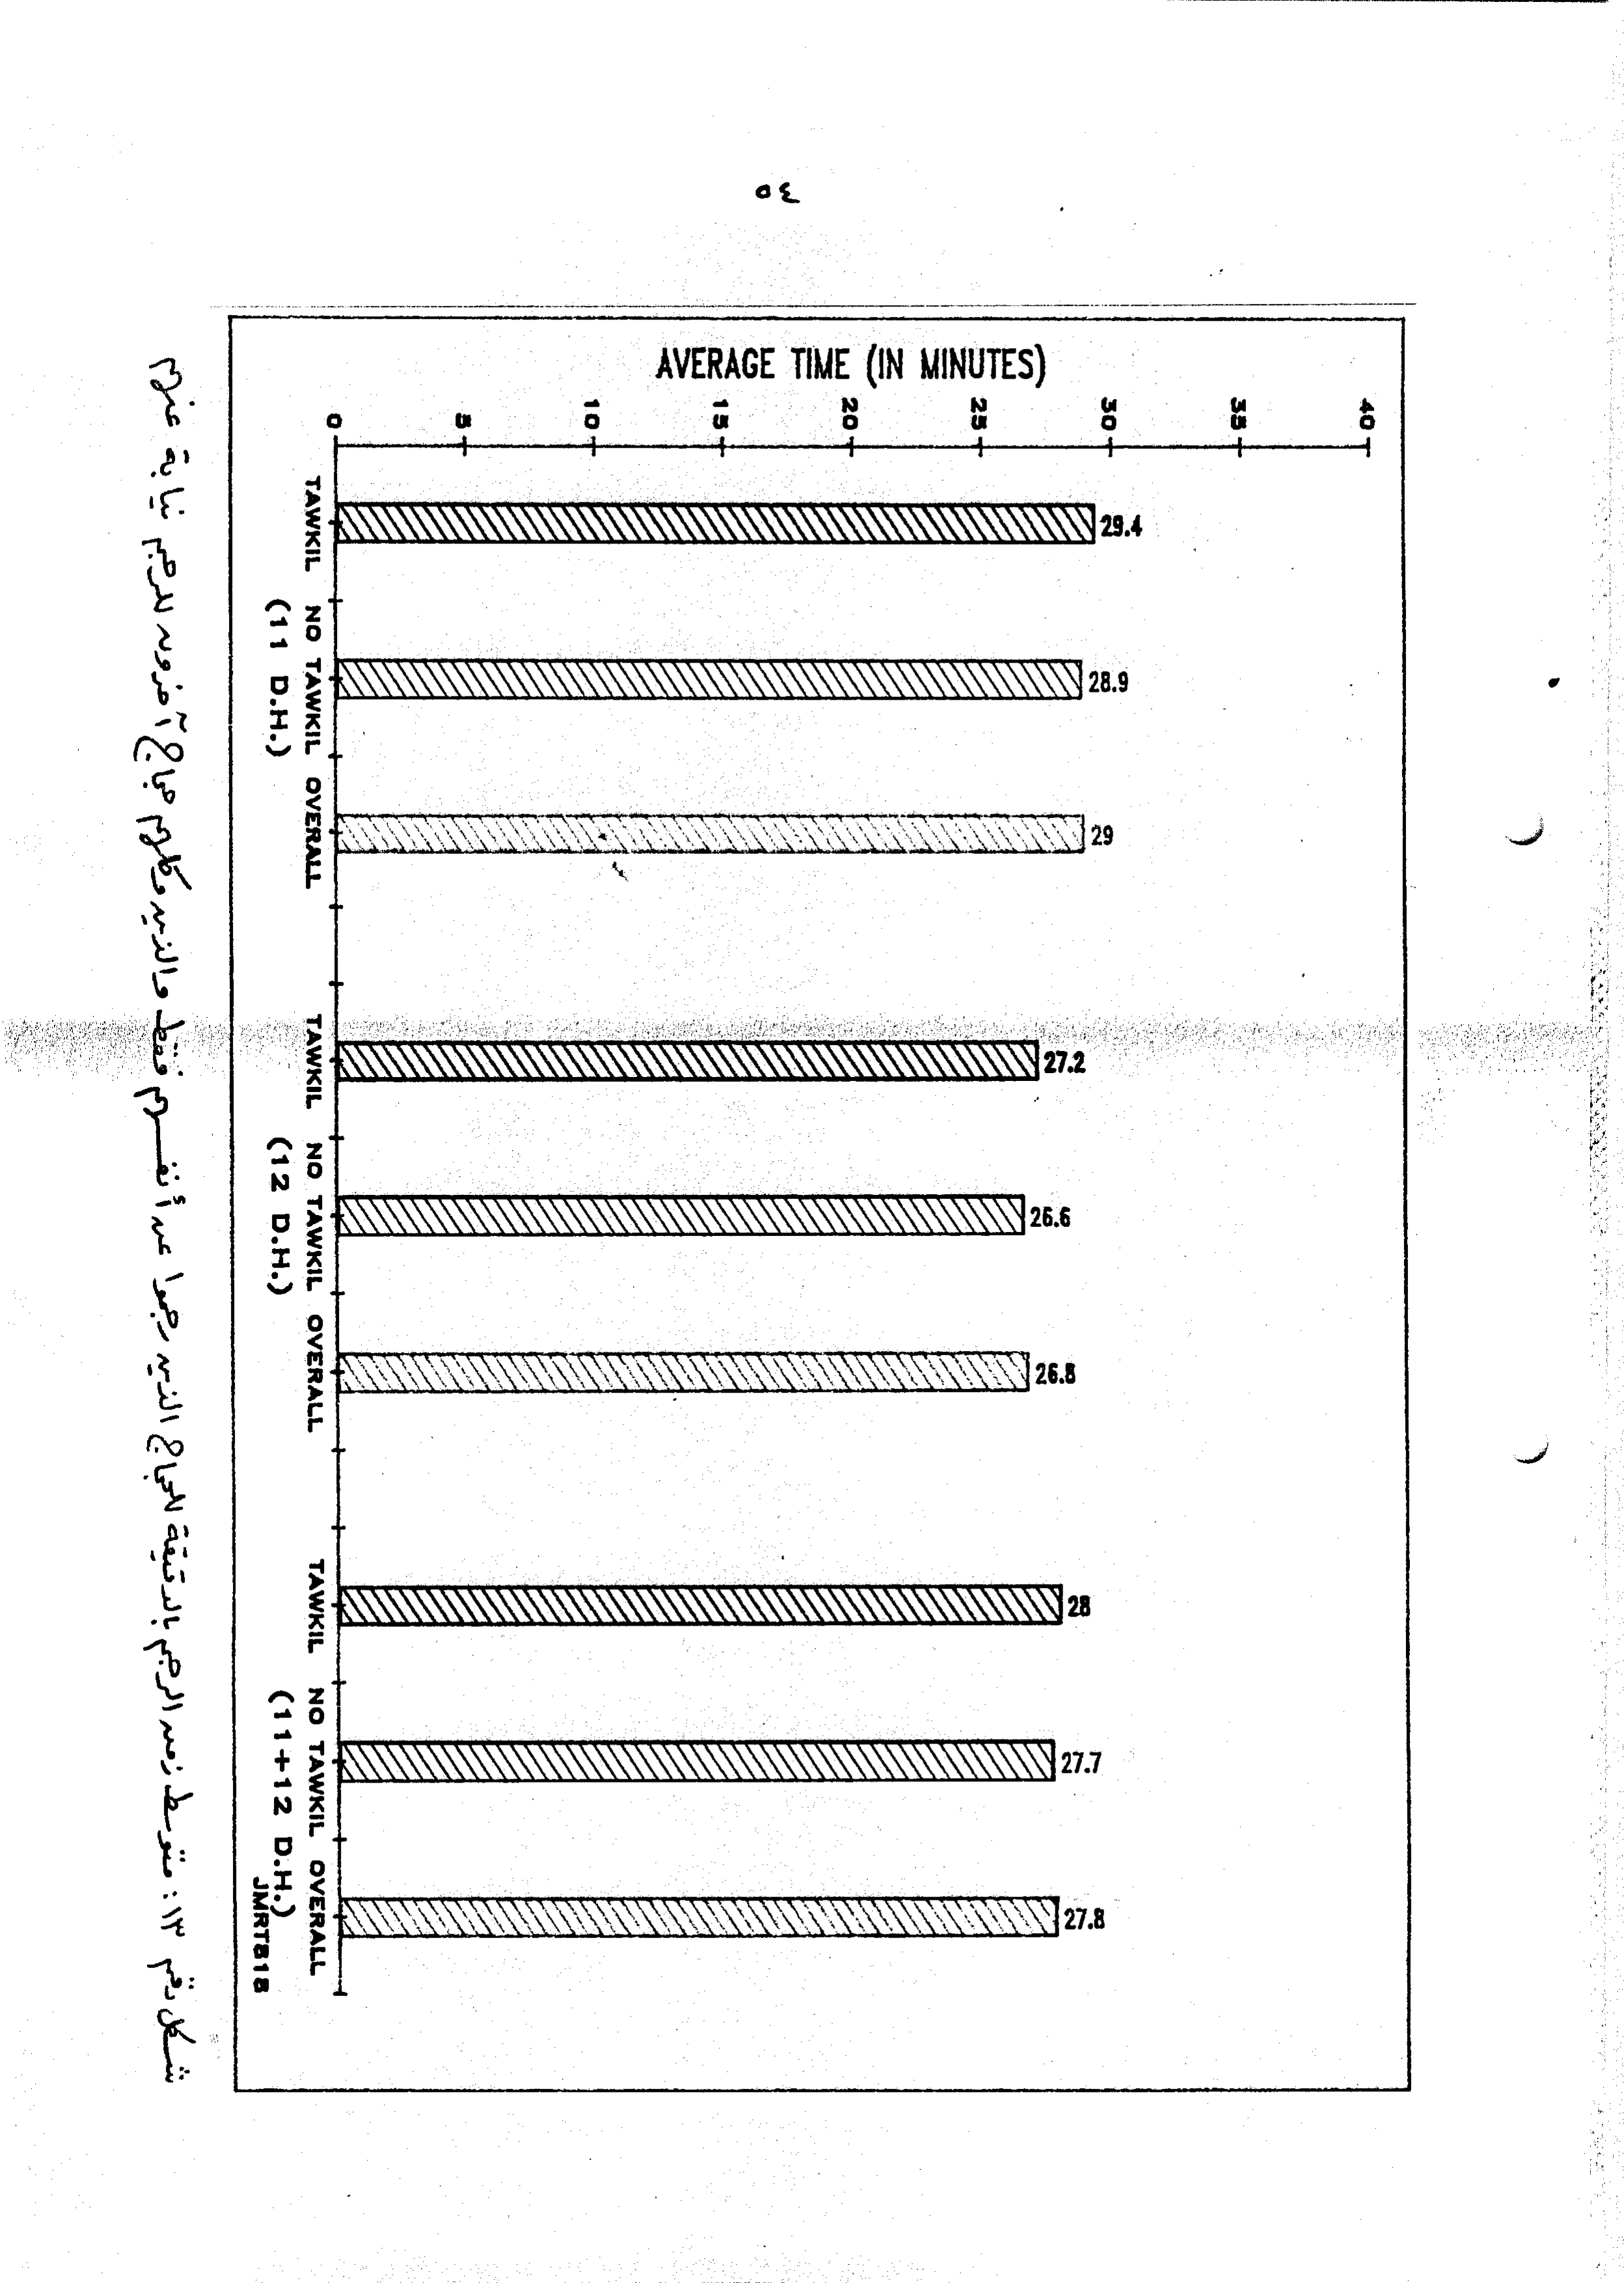 ٤٥
AVERAGE TIME (IN MINUTES)
0 5 10 15 20 25 30 35 40
29.4
28.9
29
27.2
26.6
26.8
28
27.7
27.8
TAWKIL NO TAWKIL OVERALL TAWKIL NO TAWKIL OVERALL TAWKIL NO TAWKIL OVERALL
(11 D.H.) (12 D.H.) (11+12 D.H.)
JMRT818
شكل رقم ١٣ : متوسط زمن الرجم بالدقيقة للحجاج الذين رجموا عن أنفسهم فقط والذين وكلهم حجاج آخرون للرجم نيابة عنهم